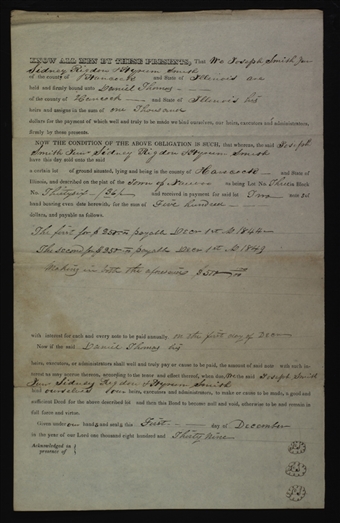 KNOW ALL MEN BY THESE PRESENTS, That We Joseph Smith Jun
Sidney Rigdon & Hyrum Smith
of the county of Hancock and State of Illinois are
held and firmly bound unto Daniel Thomas
of the county of Hancock and State of Illinois his
heirs and assigns in the sum of one Thousand
dollars for the payment of which well and truly to be made we bind ourselves, our heirs, executors and administrators,
firmly by these presents.
NOW THE CONDITION OF THE ABOVE OBLIGATION IS SUCH, that whereas, the said Joseph
Smith Jun Sidney Rigdon & Hyrum Smith
have this day sold unto the said
a certain lot of ground situated, lying and being in the county of Hancock and State of
Illinois, and described on the plat of the Town of Nauvoo as being Lot No. Three Block
No. Thirtysix (36) and received in payment for said lot two note of
hand bearing even date herewith, for the sum of Five hundred
dollars, and payable as follows.
The first for $250 payable Decr 1st A 1842
The second for $250 payable Decr 1st A 1843
Making in both the aforesaid, $500
with interest for each and every note to be paid annually, on the first day of Decr
Now if the said Daniel Thomas his
heirs, executors, or administrators shall well and truly pay or cause to be paid, the amount of said note with each in-
terest as may accrue thereon, according to the tenor and effect thereof, when due, We the said Joseph Smith
Jun Sidney Rigdon & Hyrum Smith
bind ourselves our heirs, executors and administrators, to make or cause to be made, a good and
sufficient Deed for the above described lot and then this Bond to become null and void, otherwise to be and remain in
full force and virtue.
Given under our hands and seals this First day of December
in the year of our Lord one thousand eight hundred and Thirty Nine
Acknowledged in
presence of